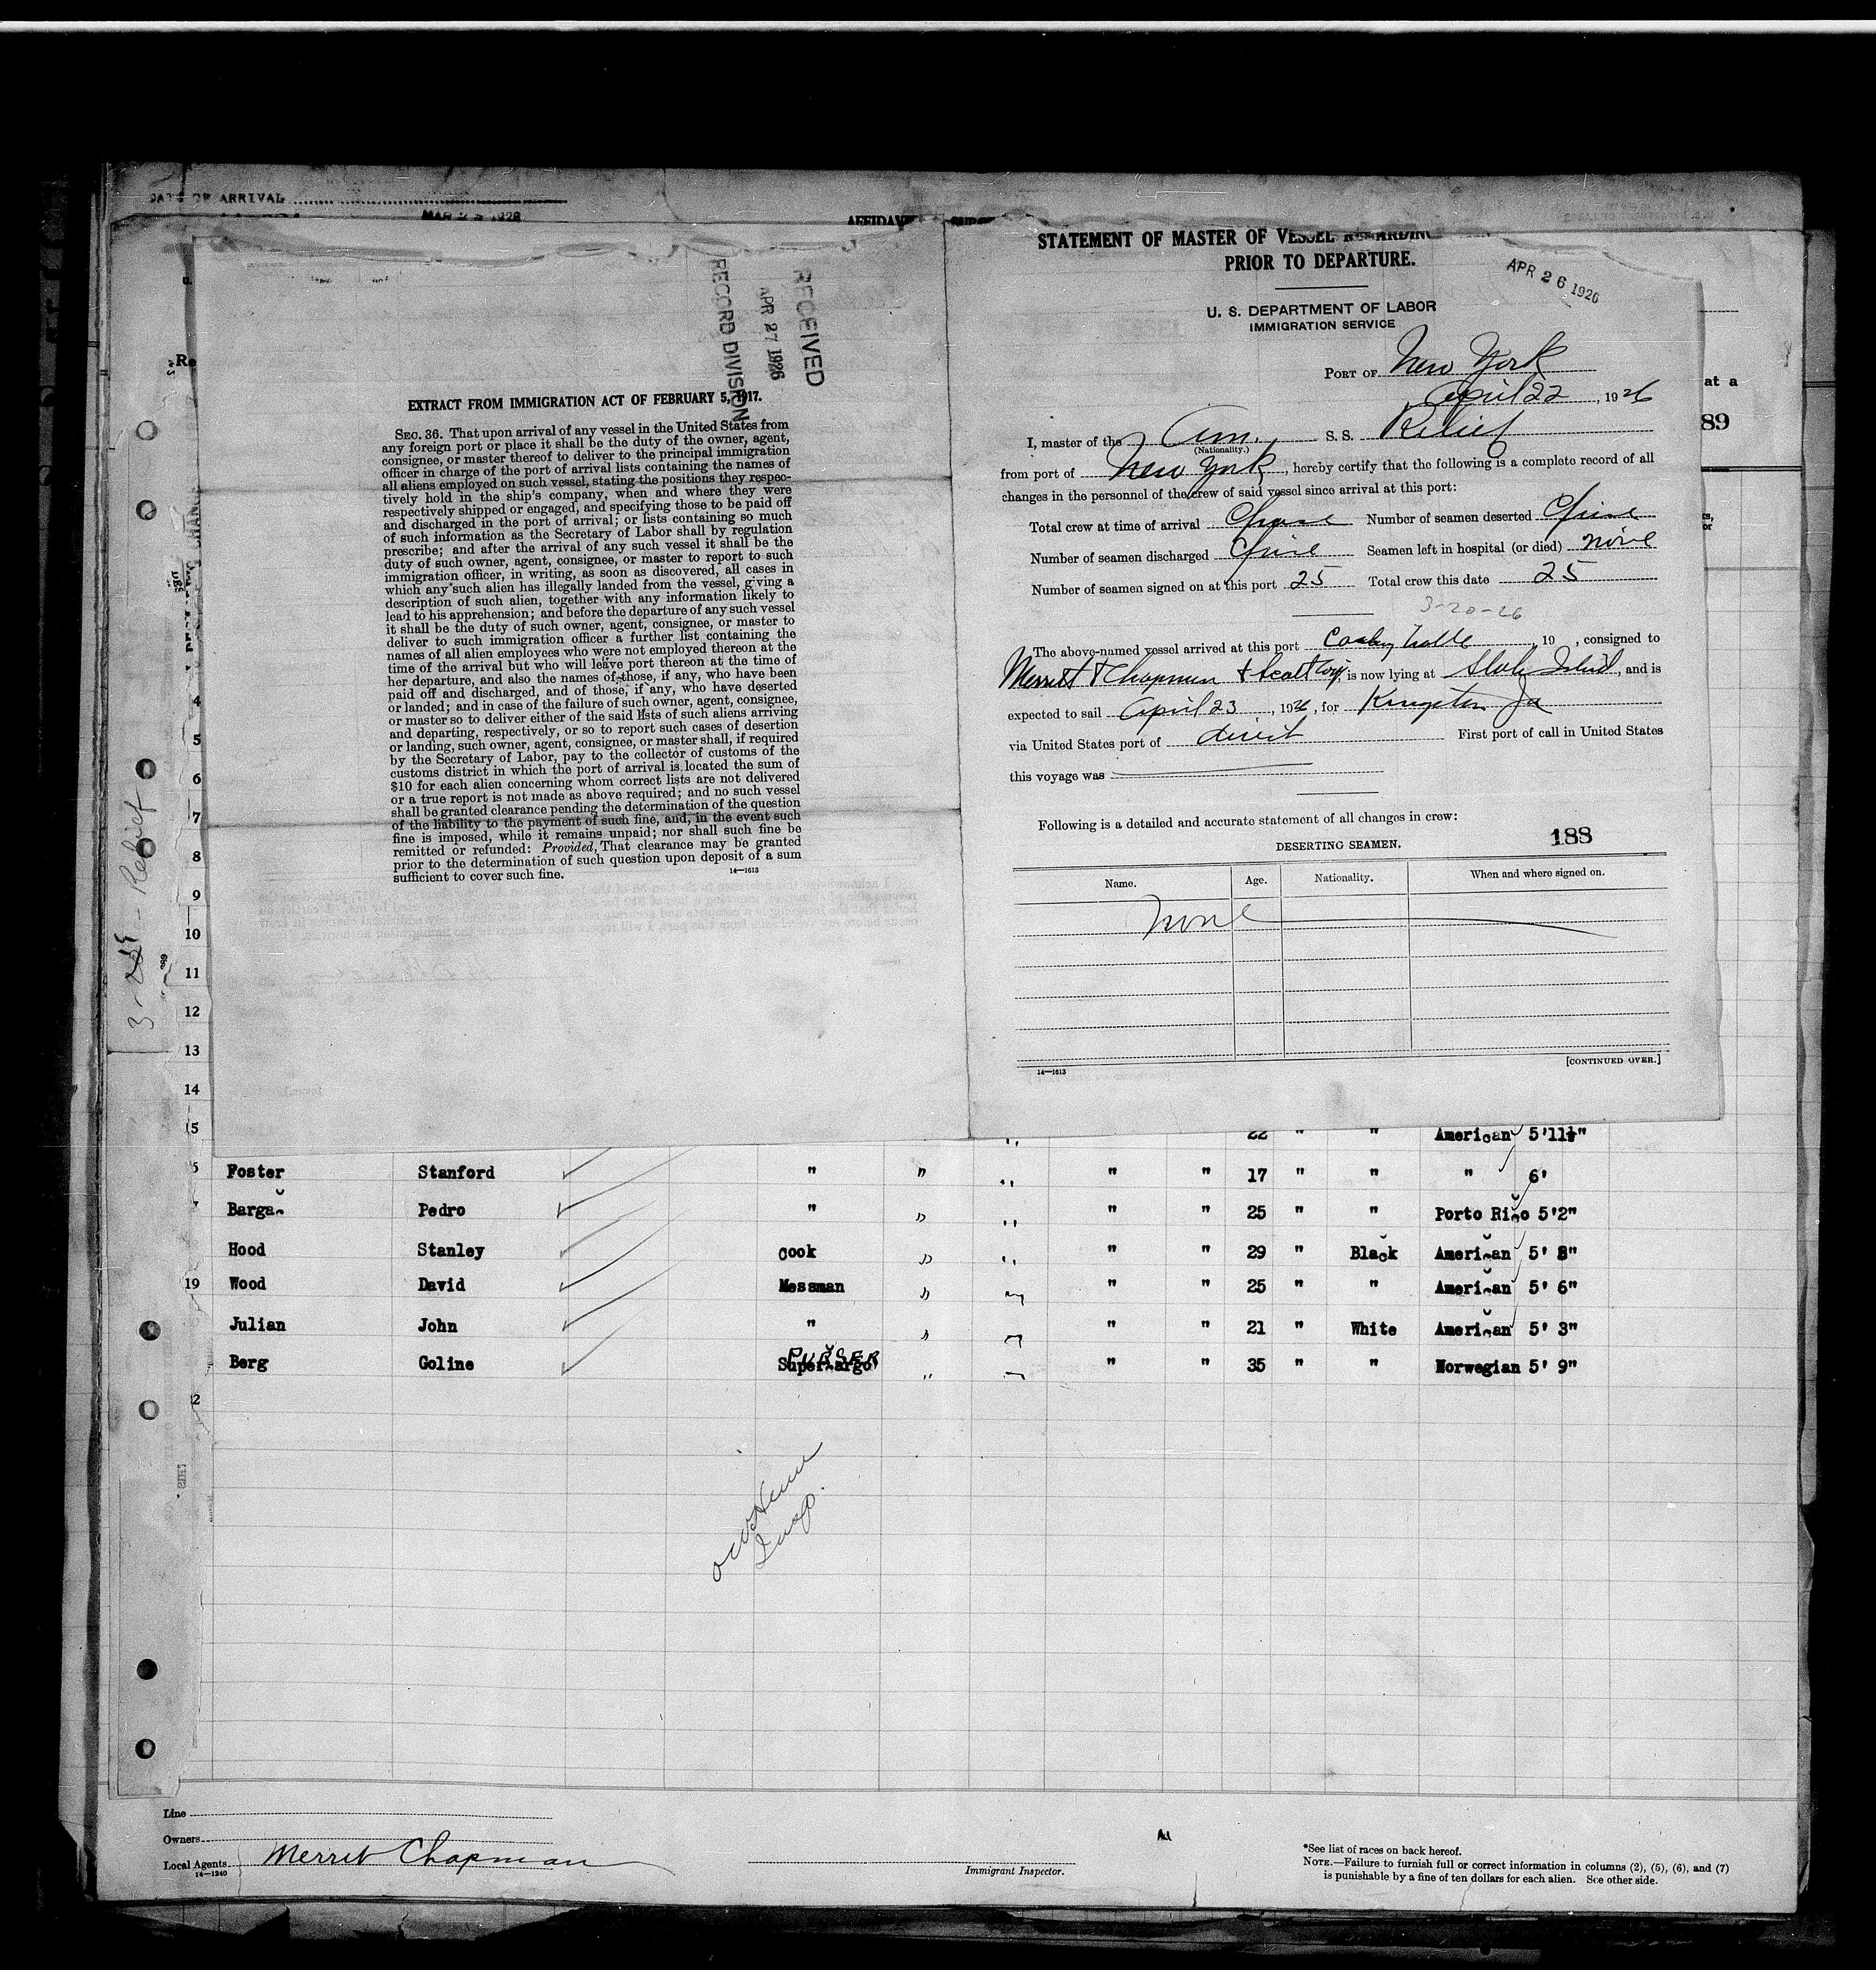 DATE OF ARRIVAL
MAR 1926
AFFIDAV
Re
at a
89
RECEIVED
APR 27 1926
RECORD DIVISION
EXTRACT FROM IMMIGRATION ACT OF FEBRUARY 5, 1917.
SEC. 36. That upon arrival of any vessel in the United States from
any foreign port or place it shall be the duty of the owner, agent,
consignee, or master thereof to deliver to the principal immigration
officer in charge of the port of arrival lists containing the names of
all aliens employed on such vessel, stating the positions they respec-
tively hold in the ship's company, when and where they were
respectively shipped or engaged, and specifying those to be paid off
and discharged in the port of arrival; or lists containing so much
of such information as the Secretary of Labor shall by regulation
prescribe; and after the arrival of any such vessel it shall be the
duty of such owner, agent, consignee, or master to report to such
immigration officer, in writing, as soon as discovered, all cases in
which any such alien has illegally landed from the vessel, giving a
description of such alien, together with any information likely to
lead to his apprehension; and before the departure of any such vessel
it shall be the duty of such owner, agent, consignee, or master to
deliver to such immigration officer a further list containing the
names of all alien employees who were not employed thereon at the
time of the arrival but who will leave port thereon at the time of
her departure, and also the names of those, if any, who have been
paid off and discharged, and of those, if any, who have deserted
or landed; and in case of the failure of such owner, agent, consignee,
or master so to deliver either of the said lists of such aliens arriving
and departing, respectively, or so to report such cases of desertion
or landing, such owner, agent, consignee, or master shall, if required
by the Secretary of Labor, pay to the collector of customs of the
customs district in which the port of arrival is located the sum of
$10 for each alien concerning whom correct lists are not delivered
or a true report is not made as above required; and no such vessel
shall be granted clearance pending the determination of the question
of the liability to the payment of such fine, and, in the event such
fine is imposed, while it remains unpaid; nor shall such fine be
remitted or refunded: Provided, That clearance may be granted
prior to the determination of such question upon deposit of a sum
sufficient to cover such fine.
14—1613
STATEMENT OF MASTER OF VESSEL REGARDING
PRIOR TO DEPARTURE.
APR 26 1926
U. S. DEPARTMENT OF LABOR
IMMIGRATION SERVICE
PORT OF New York
April 22, 1926
I, master of the Am. S. S. Relief
(Nationality.)
from port of New York, hereby certify that the following is a complete record of all
changes in the personnel of the crew of said vessel since arrival at this port:
Total crew at time of arrival Number of seamen deserted
Number of seamen discharged Seamen left in hospital (or died) none
Number of seamen signed on at this port 25 Total crew this date 25
3-20-26
The above-named vessel arrived at this port , 19 , consigned to
Merritt & Chapman & Scott is now lying at , and is
expected to sail April 23, 1926, for Kingston Ja
via United States port of direct First port of call in United States
this voyage was
Following is a detailed and accurate statement of all changes in crew:
188
DESERTING SEAMEN.
Name. Age. Nationality. When and where signed on.
none
[CONTINUED OVER.]
14—1613
3- - Relief
4
5
6
7
8
9
10
11
12
13
14
15
22 " " American 5'11½"
Foster Stanford " " " " " 17 " " " 6'
Bargas Pedro " " " " " 25 " " Porto Rico 5'2"
Hood Stanley Cook " " " " 29 " Black American 5' 8"
19 Wood David Messman " " " " 25 " " American 5' 6"
Julian John " " " " " 21 " White American 5' 3"
PURSER
Berg Goline Supercargo " " " " 35 " " Norwegian 5' 9"
Insp.
Line
Owners
Local Agents Merret Chapman
14—1240
Immigrant Inspector.
*See list of races on back hereof.
NOTE.—Failure to furnish full or correct information in columns (2), (5), (6), and (7)
is punishable by a fine of ten dollars for each alien. See other side.